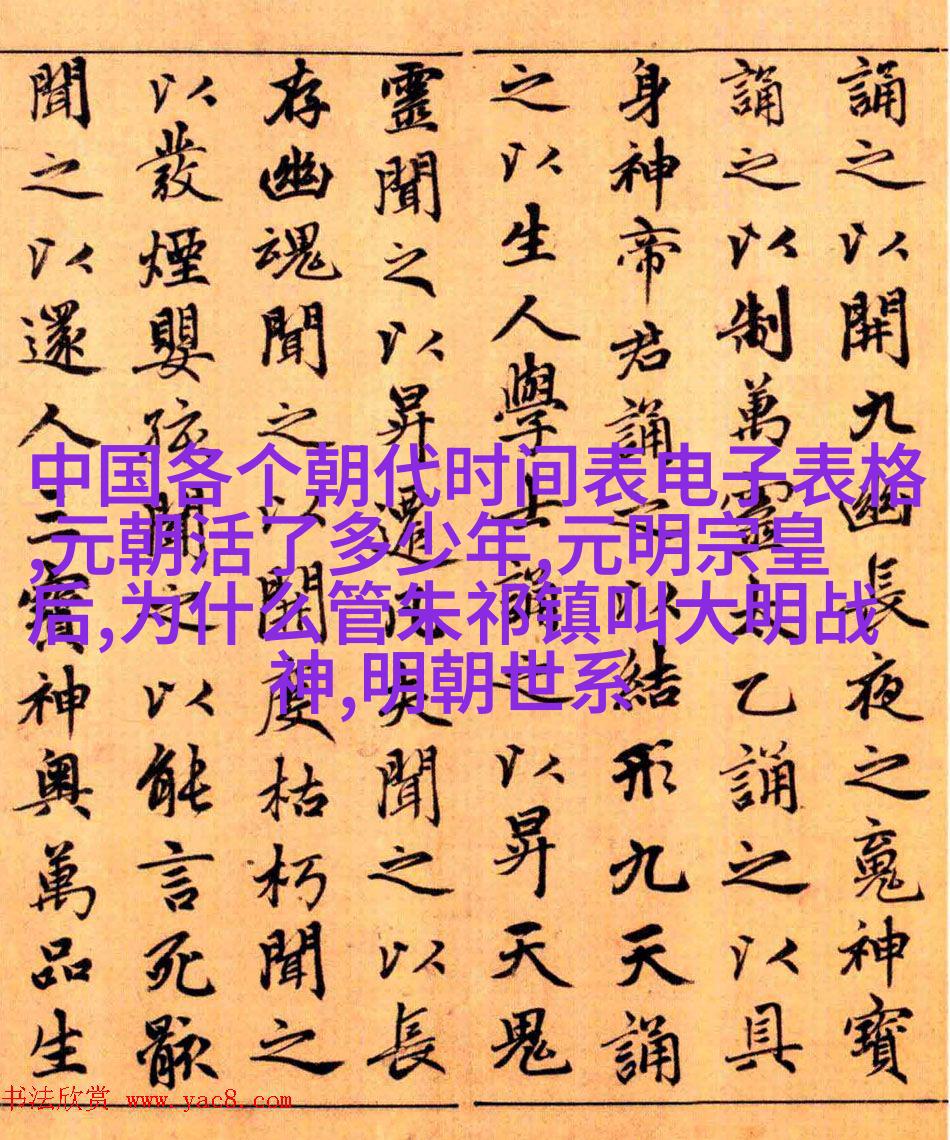 誦之以開九幽長夜之䰟神寶
誦之以制萬靈太乙誦之以具
身神帝君誦之以結形九天誦
之以生人學士誦之以昇天鬼
靈聞之以昇遷凶夭聞之以長
存幽魂聞之以開度枯朽聞之
以發煙嬰孩聞之以能言死骸
聞之以還人三寶神奧萬品生
中国各个朝代时间表电子表格
,元朝活了多少年,元明宗皇
后,为什么管朱祁镇叫大明战
神,明朝世系
书法欣赏 www.yac8.com